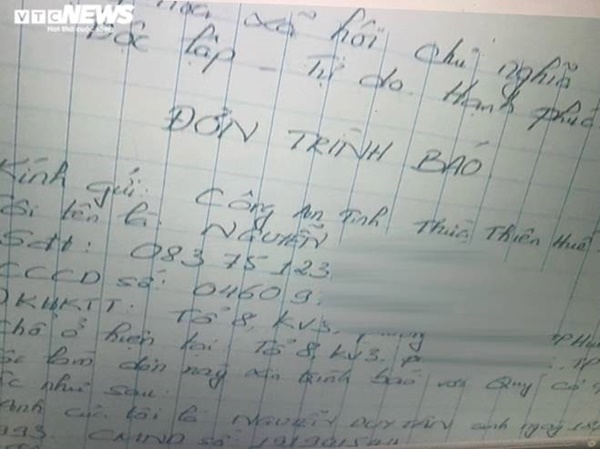 VTC NEWS
xã hội chủ nghĩa
Độc lập - Tự do Hạnh phúc
ĐƠN TRÌNH BÁO
Kính gửi: Công An Tỉnh Thừa Thiên Huế.
Tôi tên là: NGUYỄN
Sđt: 083 75 123
CCCD số: 04609
ĐKHKTT: Tổ 8, KV3.
Chổ ở hiện tại Tổ 8, KV3. P
làm đơn này xin trình báo với Quý Cơ
như sau:
Anh của tôi là NGUYỄN DUY sinh ngày
1993. CMND số